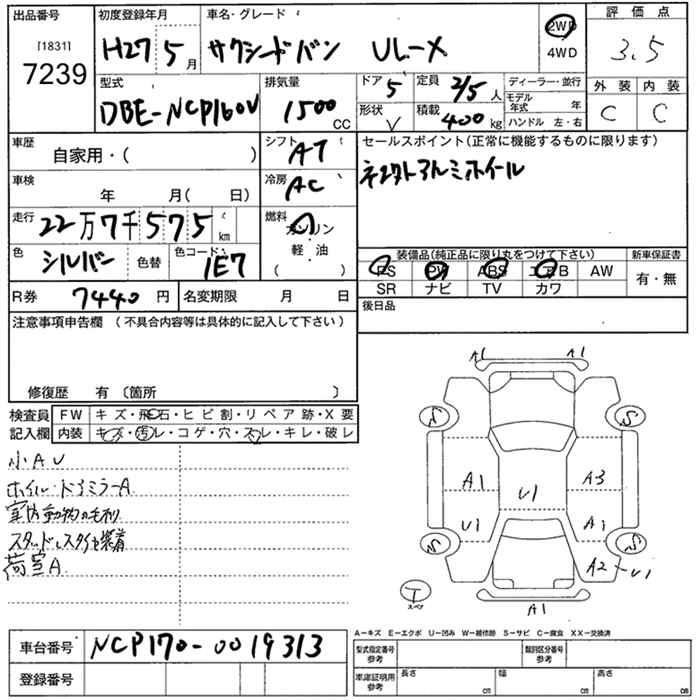 出品番号
[1831]
7239
初度登録年月
H27 5月
車名・グレード
サクシードバン UL-X
2WD
4WD
評価点
3.5
型式
DBE-NCP160V
排気量
1500 CC
ドア 5
形状 V
定員 2/5 人
積載 400 kg
ディーラー・並行
モデル年式 年
ハンドル 左・右
外装 内装
C C
車歴
自家用・( )
シフト AT
セールスポイント(正常に機能するものに限ります)
車検
年 月( 日)
冷房 AC
走行
22万7千575 km
燃料
ガソリン
軽・油
( )
色
シルバー
色替
色コード
1E7
装備品(純正品に限り丸をつけて下さい)
新車保証書
PS PW ABS エアB AW
有・無
SR ナビ TV カワ
R券 7440 円
名変期限 月 日
後日品
注意事項申告欄 (不具合内容等は具体的に記入して下さい)
修復歴 有〔箇所 〕
検査員
記入欄
FW キズ・飛石・ヒビ割・リペア跡・X要
内装 キズ・汚レ・コゲ・穴・スレ・キレ・破レ
小AU
ホイル・ドアミラーA
室内動物の毛有り
スタッドレスタイヤ装着
荷室A
A1 A1
S S
A1 A3
U1
U1 A1
S S
A2-U1
T
スペア
A1
A-キズ E-エクボ U-凹み W-補修跡 S-サビ C-腐食 XX-交換済
車台番号
NCP170-0019313
登録番号
型式指定番号
参考
類別区分番号
参考
車庫証明用
参考
長さ cm
幅 cm
高さ cm